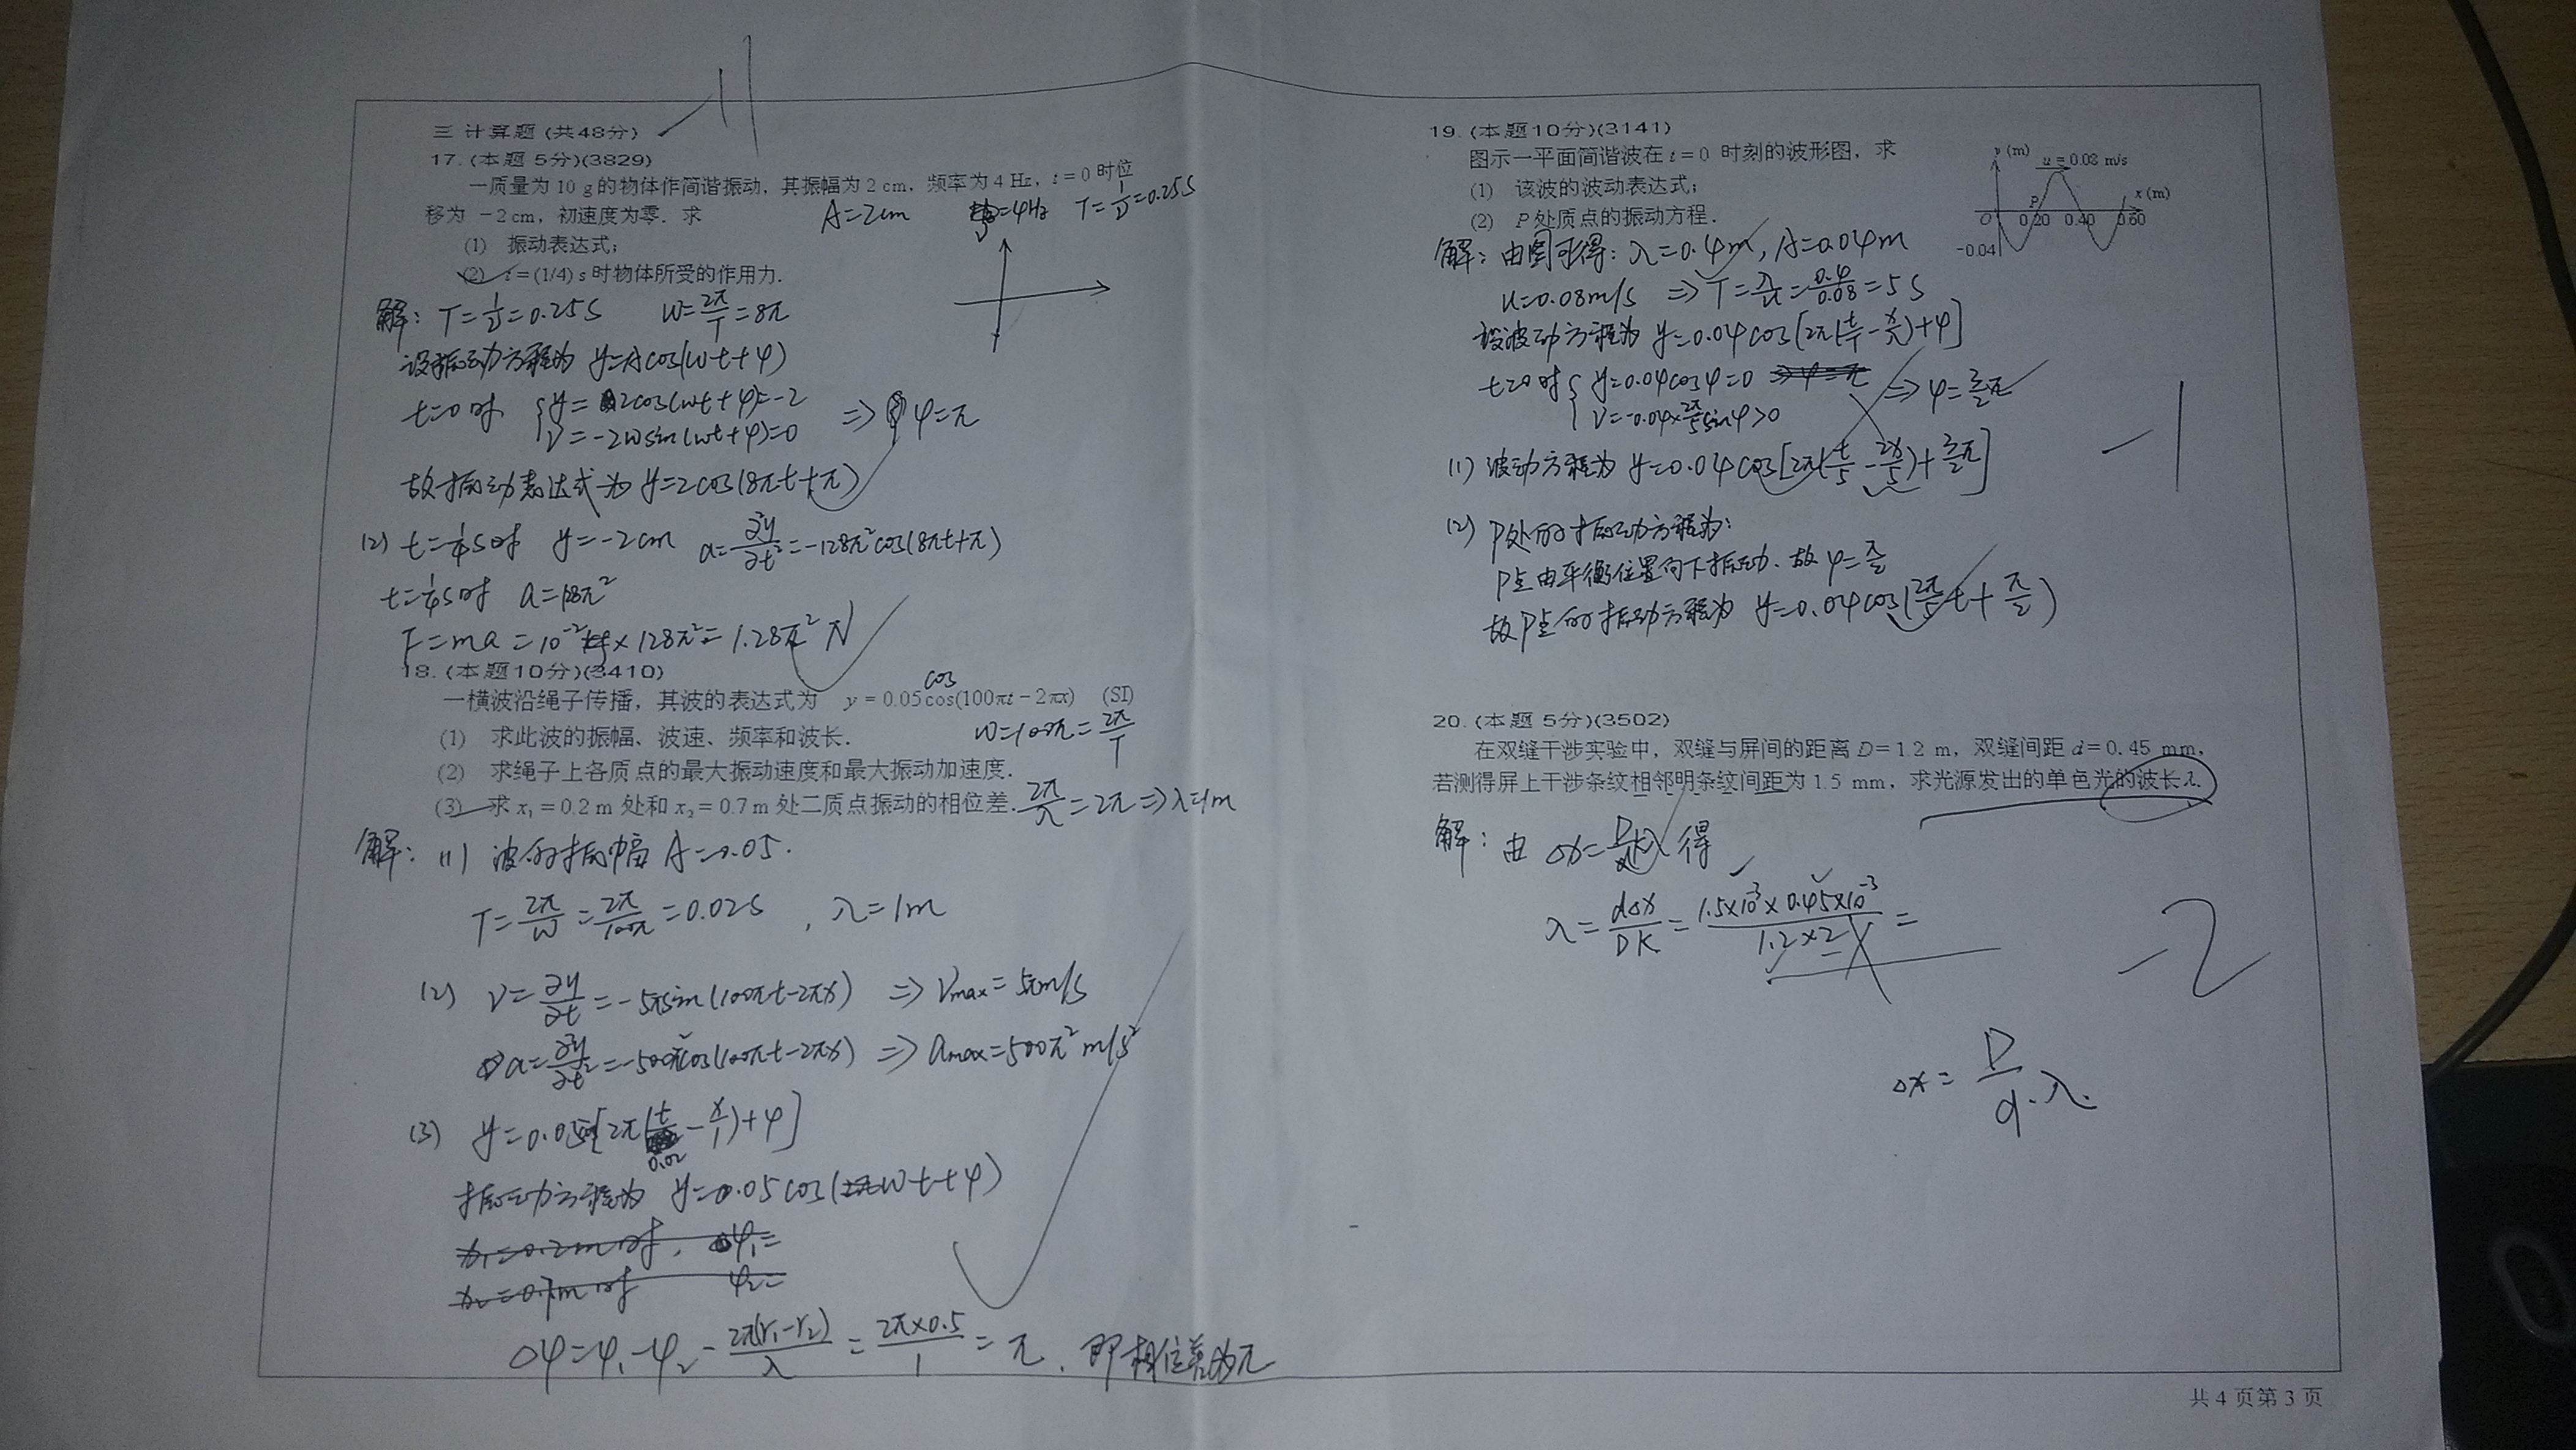 -11
三 计算题 (共48分)
17. (本题 5分)(3829)
一质量为 10 g 的物体作简谐振动，其振幅为 2 cm，频率为 4 Hz，t = 0 时位
移为 －2 cm，初速度为零．求
A=2cm
=4Hz T=1/ν=0.25S
(1) 振动表达式；
(2) t = (1/4) s 时物体所受的作用力．
解: T=1/ν=0.25S ω=2π/T=8π
设振动方程为 y=Acos(ωt+φ)
t=0时 { y=2cos(ωt+φ)=-2
V=-2ωsin(ωt+φ)=0 => φ=π
故振动表达式为 y=2cos(8πt+π)
(2) t=1/4S时 y=-2cm a=∂²y/∂t²=-128π²cos(8πt+π)
t=1/4S时 a=128π²
F=ma=10⁻²×128π²=1.28π² N
18. (本题10分)(3410)
cos
一横波沿绳子传播，其波的表达式为 y = 0.05 cos(100πt − 2πx) (SI)
(1) 求此波的振幅、波速、频率和波长．
ω=100π=2π/T
(2) 求绳子上各质点的最大振动速度和最大振动加速度．
(3) 求 x₁ = 0.2 m 处和 x₂ = 0.7 m 处二质点振动的相位差．
2π/λ=2π => λ=1m
解: (1) 波的振幅 A=0.05.
T=2π/ω=2π/100π=0.02S , λ=1m
(2) V=∂y/∂t=-5πsin(100πt-2πx) => Vmax=5πm/s
a=∂²y/∂t²=-500π²cos(100πt-2πx) => amax=500π² m/s²
(3) y=0.05cos[2π(t/0.02-x/1)+φ]
振动方程为 y=0.05cos(ωt+φ)
x₁=0.2m时, φ₁=
x₂=0.7m时 φ₂=
Δφ=φ₁-φ₂-2π(r₁-r₂)/λ=2π×0.5/1=π. 即相位差为π
19. (本题10分)(3141)
图示一平面简谐波在 t = 0 时刻的波形图，求
(1) 该波的波动表达式；
(2) P 处质点的振动方程．
y (m)
u = 0.08 m/s
x (m)
P
O
0.20
0.40
0.60
-0.04
解: 由图可得: λ=0.4m, A=0.04m
u=0.08m/s => T=λ/u=0.4/0.08=5S
设波动方程为 y=0.04cos[2π(t/T-x/λ)+φ]
t=0时 { y=0.04cosφ=0 => φ=π
V=-0.04×2π/5 sinφ>0 => φ=3/2π
(1) 波动方程为 y=0.04cos[2π(t/5-2x/5)+3/2π]
-1
(2) P处的振动方程为:
P点由平衡位置向下振动. 故φ=π/2
故P点的振动方程为 y=0.04cos(2π/5t+π/2)
20. (本题 5分)(3502)
在双缝干涉实验中，双缝与屏间的距离 D＝1.2 m，双缝间距 d＝0.45 mm，
若测得屏上干涉条纹相邻明条纹间距为 1.5 mm，求光源发出的单色光的波长λ．
解: 由 Δx=D/dkλ 得
λ=dΔx/DK=1.5×10⁻³×0.45×10⁻³/1.2×2=
-2
Δx=D/d·λ.
共 4 页第 3 页